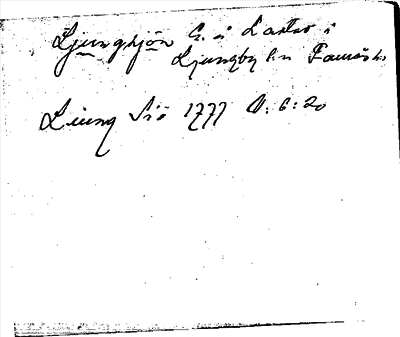 Ljungsjön C. i Lastas i
Ljungby sn Faurås hd
Liung Siö 1777 V: 6: 20